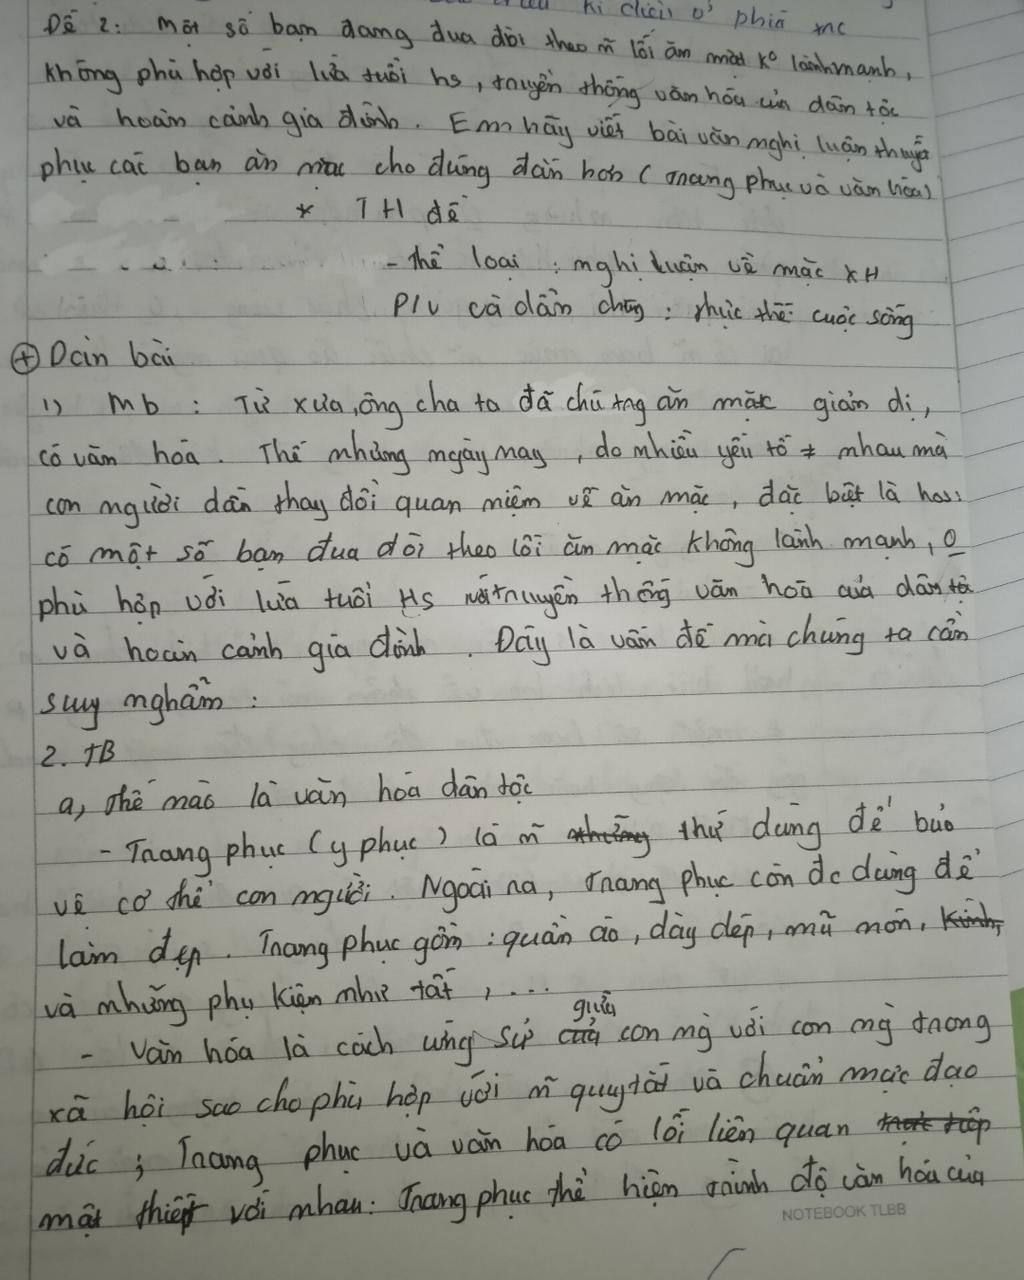 kì diệu ở phía mc
Đề 2: Một số bạn đang đua đòi theo ~ lối ăn mặt k° lành mạnh,
không phù hợp với lứa tuổi hs, truyền thống văn hóa của dân tộc
và hoàn cảnh gia đình. Em hãy viết bài văn nghị luận thuyết
phục các bạn ăn mặc cho đúng đắn hơn (Trang phục và văn hóa)
* TH đề
- thể loại : nghị luận về mặc XH
P/V cà dẫn chứng : thực thế cuộc sống
⊕ Dàn bài
1) Mb : Từ xưa, ông cha ta đã chú tng ăn mặc giản dị,
có văn hóa. Thế nhưng ngày nay, do nhiều yếu tố ≠ nhau mà
con người dần thay đổi quan niệm về ăn mặc, đặc biệt là hs:
có một số bạn đua đòi theo lối ăn mặc không lành mạnh, 0
phù hợp với lứa tuổi HS với truyền thống văn hoá của dân tộ
và hoàn cảnh gia đình. Đây là vấn đề mà chúng ta cần
suy nghẫm :
2. TB
a, thế nào là văn hóa dân tộc
- Trang phục (y phục) là ~ những thứ dùng để bảo
vệ cơ thể con người. Ngoài ra, trang phục còn đc dùng để
làm đẹp. Trang phục gồm : quần áo, dày dép, mũ nón, kính,
và những phụ kiện như tất, ...
- Văn hóa là cách ứng sử của giữa con ng` với con ng` trong
xã hội sao cho phù hợp với ~ quy tắt và chuẩn mực đạo
đức ; Trang phục và văn hóa có lối liên quan
mật thiết với nhau: Trang phục thể hiện trình độ văn hóa của
NOTEBOOK TLBB